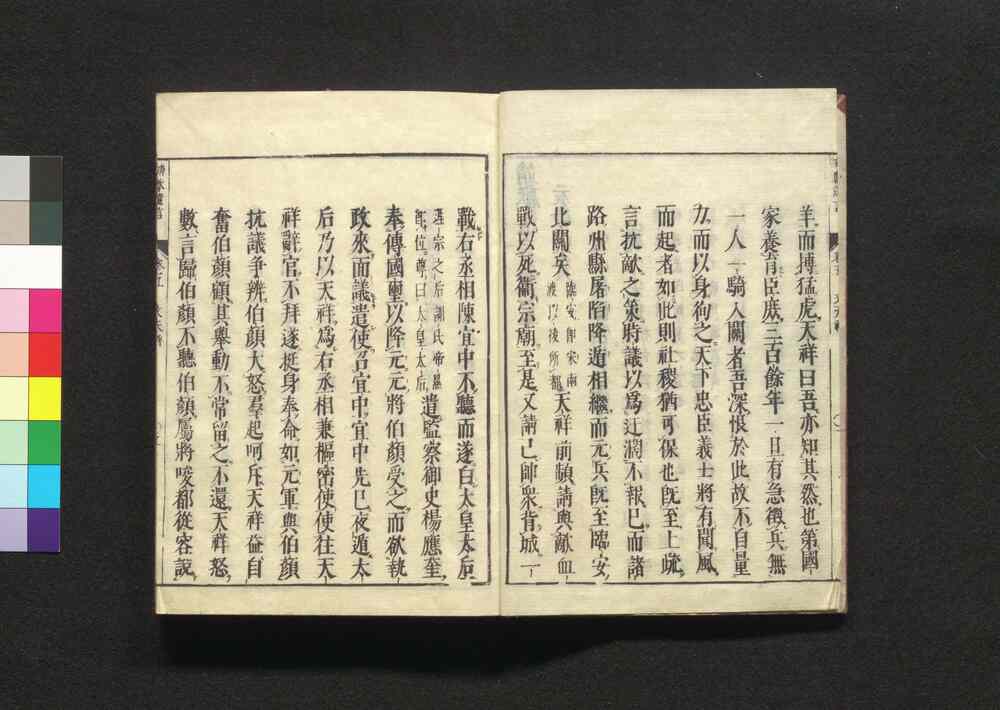 羊而搏猛虎天祥曰吾亦知其然也第國
家養育臣庶三百餘年一旦有急徵兵無
一人一騎入關者吾深恨於此故不自量
力而以身徇之天下忠臣義士將有聞風
而起者如此則社稷猶可保也旣至上疏
言抗敵之策時議以爲迂濶不報已而諸
路州縣屠陷降遁相繼而元兵旣至臨安
北關矣臨安卽宋南渡以後所都天祥前頻請與敵血
戰以死衞宗廟至是又請已帥衆背城一
戰右丞相陳宜中不聽而遂白太皇太后
理宗之后謝氏帝㬎卽位尊曰太皇太后遣監察御史楊應奎
奉傳國璽以降元元將伯顏受之而欲執
政來面議遣使召宜中宜中先已夜遁太
后乃以天祥爲右丞相兼樞密使使往天
祥辭官不拜遂挺身奉命如元軍與伯顏
抗議爭辨伯顏大怒羣起呵斥天祥益自
奮伯顏顧其舉動不常留之不還天祥怒
數言歸伯顏不聽伯顏屬將唆都從容說